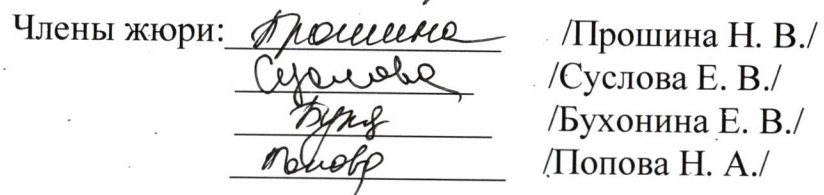 Члены жюри: Прошина /Прошина Н. В./
Суслова /Суслова Е. В./
Бухо /Бухонина Е. В./
Попова /Попова Н. А./